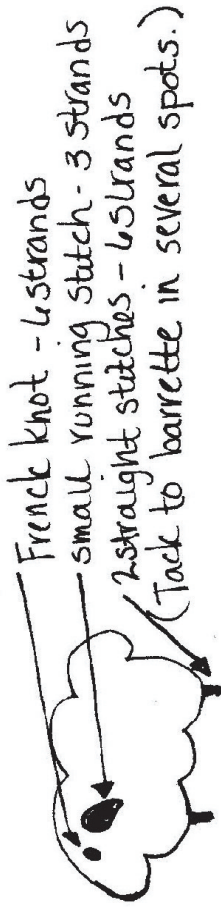 French knot - 6 strands
small running stitch - 3 strands
2 straight stitches - 6 strands
(Tack to barrette in several spots.)